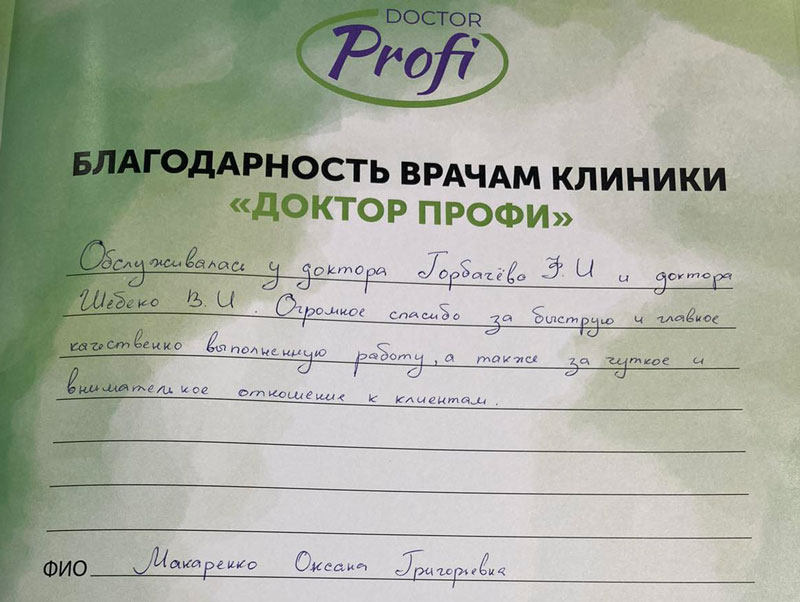 DOCTOR
Profi
БЛАГОДАРНОСТЬ ВРАЧАМ КЛИНИКИ
«ДОКТОР ПРОФИ»
Обслуживалась у доктора Горбачёва Ф.И и доктора
Шебеко В.И. Огромное спасибо за быструю и главное
качественно выполненную работу, а также за чуткое и
внимательное отношение к клиентам.
ФИО Макаренко Оксана Григорьевна